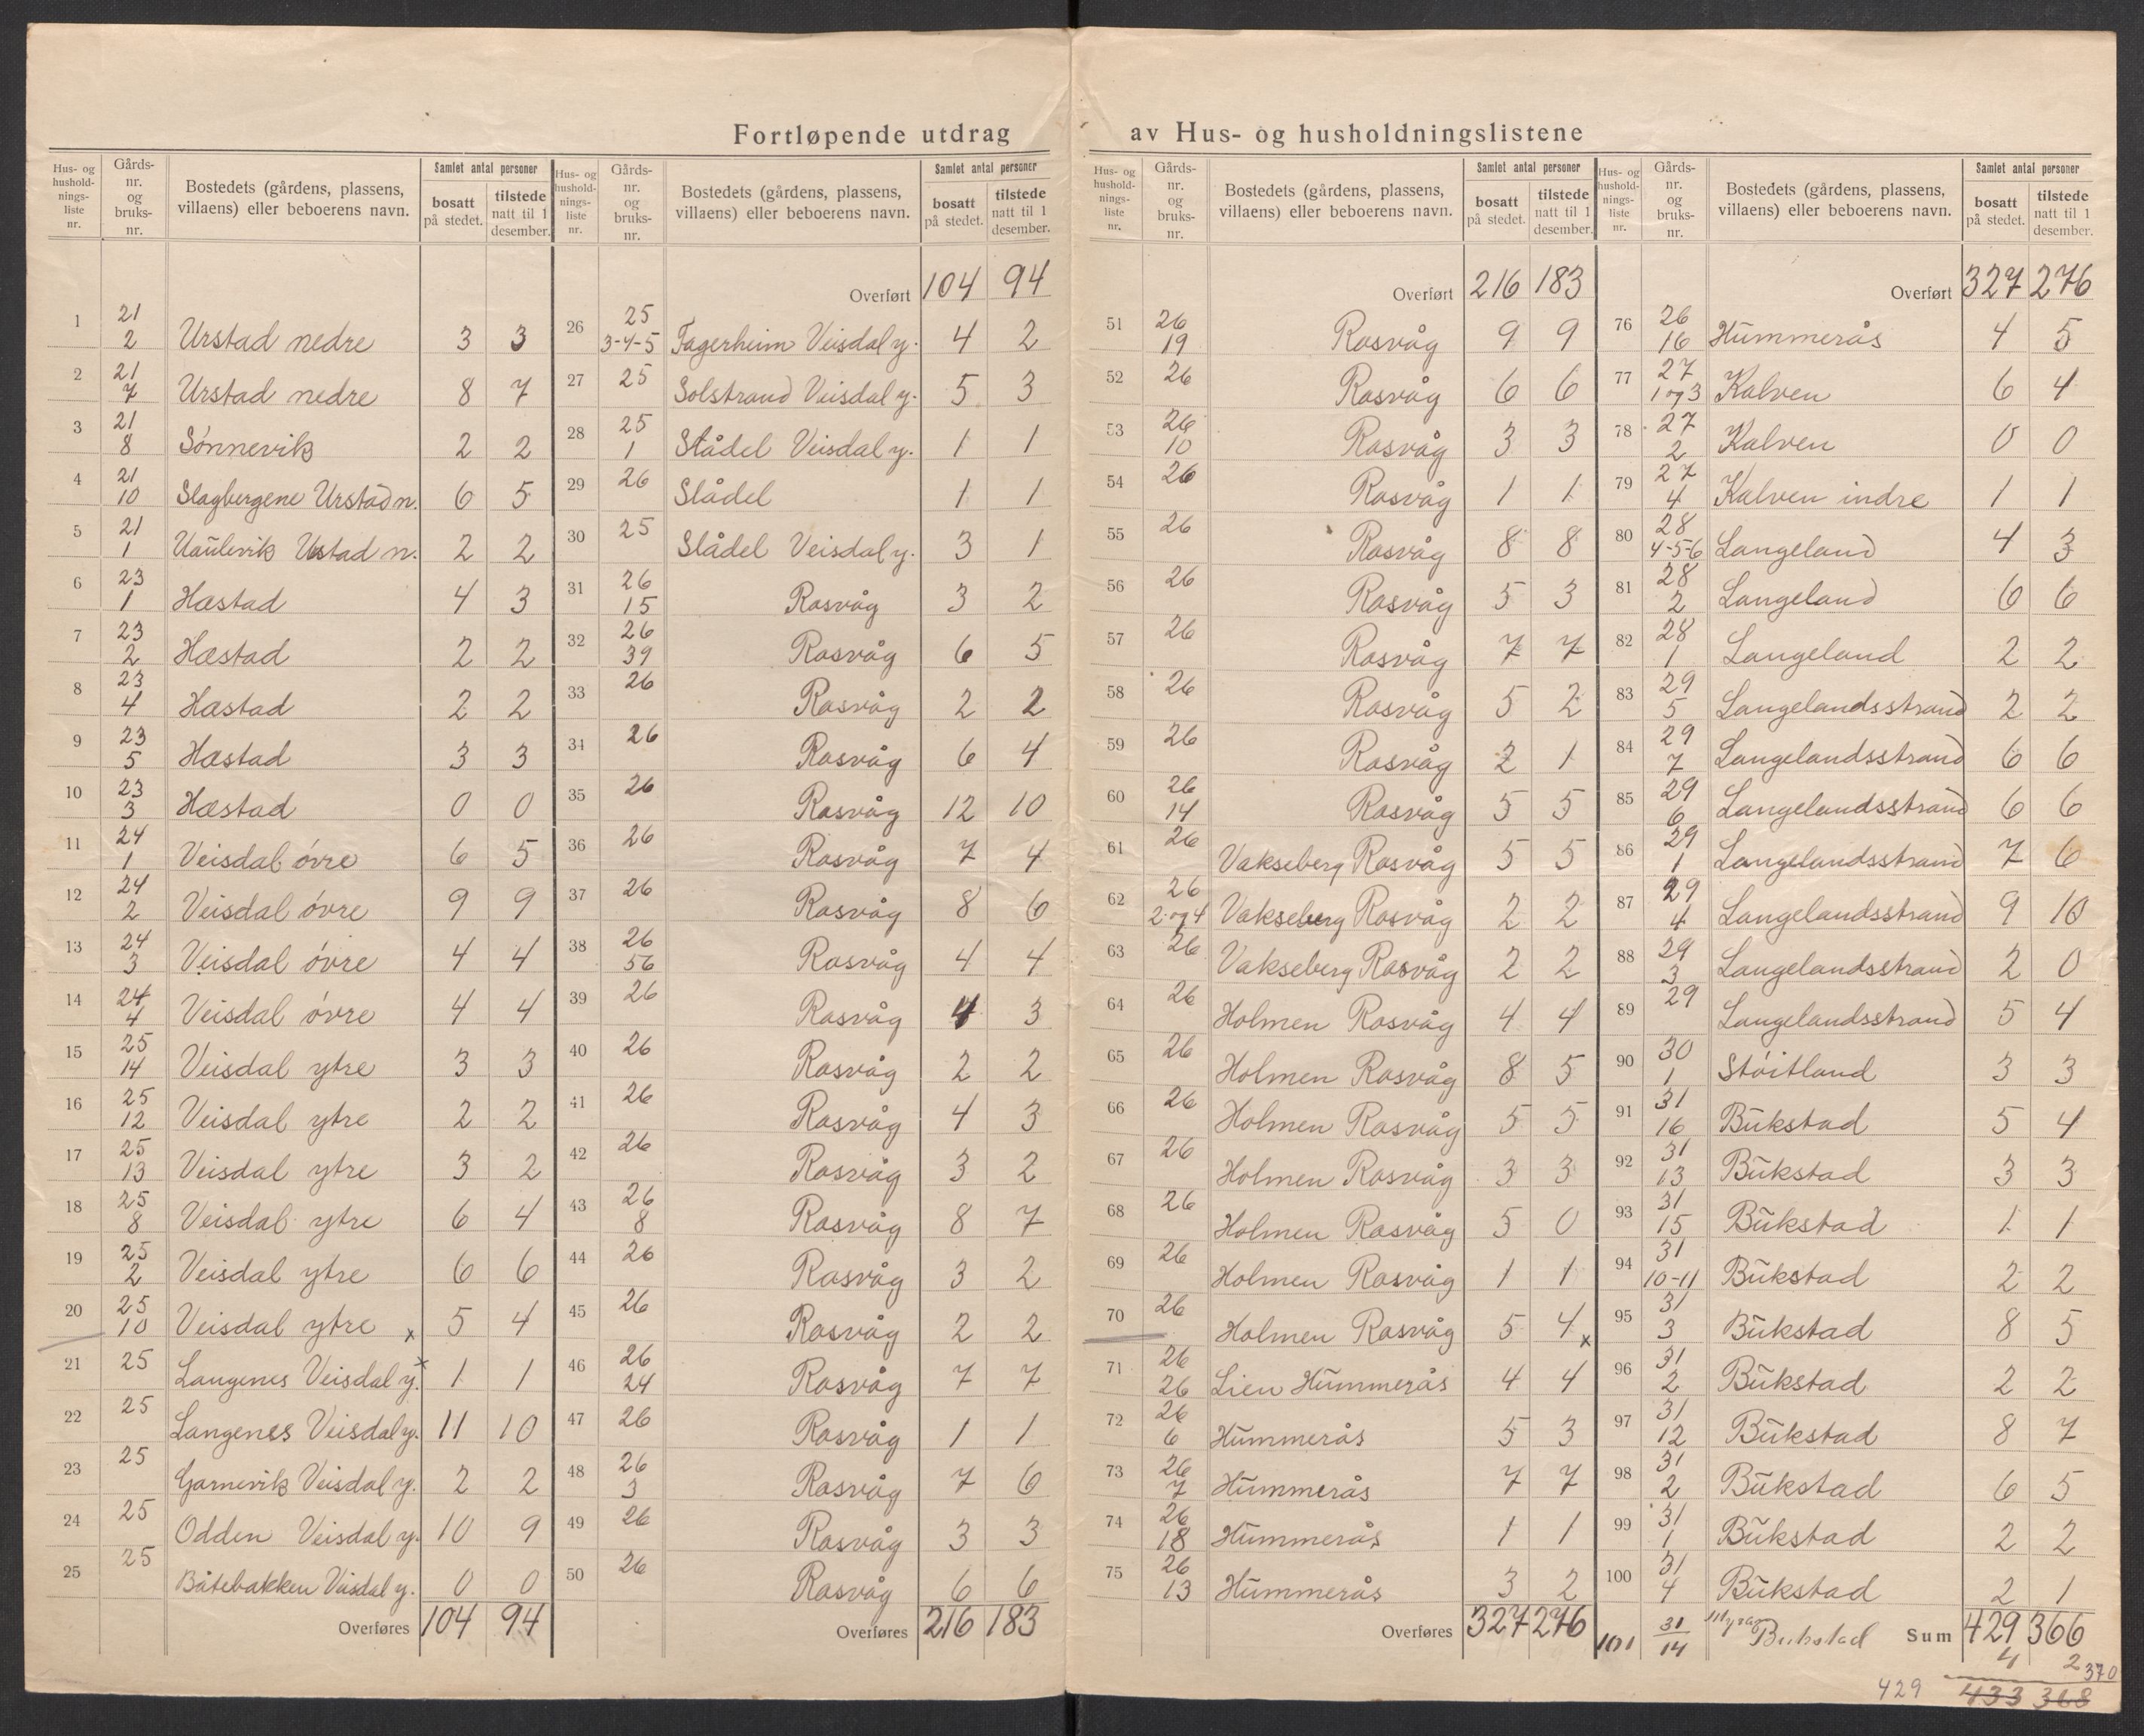 Fortløpende utdrag av Hus- og husholdningslistene
Hus- og hushold- nings- liste nr. | Gårds- nr. og bruks- nr. | Bostedets (gårdens, plassens, villaens) eller beboerens navn. | Samlet antal personer | bosatt på stedet. | tilstede natt til 1 desember.
1 21 2 Urstad nedre 3 3
2 21 7 Urstad nedre 8 7
3 21 8 Sønnevik 2 2
4 21 10 Slagbergene Urstad n. 6 5
5 21 1 Uaulevik Ustad n. 2 2
6 23 1 Hæstad 4 3
7 23 2 Hæstad 2 2
8 23 4 Hæstad 2 2
9 23 5 Hæstad 3 3
10 23 3 Hæstad 0 0
11 24 1 Veisdal óvre 6 5
12 24 2 Veisdal óvre 9 9
13 24 3 Veisdal óvre 4 4
14 24 4 Veisdal óvre 4 4
15 25 14 Veisdal ytre 3 3
16 25 12 Veisdal ytre 2 2
17 25 13 Veisdal ytre 3 2
18 25 8 Veisdal ytre 6 4
19 25 2 Veisdal ytre 6 6
20 25 10 Veisdal ytre x 5 4
21 25 Langenes Veisdal y. x 1 1
22 25 Langenes Veisdal y. 11 10
23 25 Garnevik Veisdal y. 2 2
24 25 Odden Veisdal y. 10 9
25 25 Båtebakken Veisdal y. 0 0
Overføres 104 94
Hus- og hushold- nings- liste nr. | Gårds- nr. og bruks- nr. | Bostedets (gårdens, plassens, villaens) eller beboerens navn. | Samlet antal personer | bosatt på stedet. | tilstede natt til 1 desember.
Overført 104 94
26 25 3-4-5 Fagerheim Veisdal y. 4 2
27 25 Solstrand Veisdal y. 5 3
28 25 1 Stådel Veisdal y. 1 1
29 26 Slådel 1 1
30 25 Slådel Veisdal y. 3 1
31 26 15 Rasvåg 3 2
32 26 39 Rasvåg 6 5
33 26 Rasvåg 2 2
34 26 Rasvåg 6 4
35 26 Rasvåg 12 10
36 26 Rasvåg 7 4
37 26 Rasvåg 8 6
38 26 56 Rasvåg 4 4
39 26 Rasvåg 4 3
40 26 Rasvåg 2 2
41 26 Rasvåg 4 3
42 26 Rasvåg 3 2
43 26 8 Rasvåg 8 7
44 26 Rasvåg 3 2
45 26 Rasvåg 2 2
46 26 24 Rasvåg 7 7
47 26 Rasvåg 1 1
48 26 3 Rasvåg 7 6
49 26 Rasvåg 3 3
50 26 Rasvåg 6 6
Overføres 216 183
Hus- og hushold- nings- liste nr. | Gårds- nr. og bruks- nr. | Bostedets (gårdens, plassens, villaens) eller beboerens navn. | Samlet antal personer | bosatt på stedet. | tilstede natt til 1 desember.
Overført 216 183
51 26 19 Rasvåg 9 9
52 26 Rasvåg 6 6
53 26 10 Rasvåg 3 3
54 26 Rasvåg 1 1
55 26 Rasvåg 8 8
56 26 Rasvåg 5 3
57 26 Rasvåg 7 7
58 26 Rasvåg 5 2
59 26 Rasvåg 2 1
60 26 14 Rasvåg 5 5
61 26 Vakseberg Rasvåg 5 5
62 26 2 og 4 Vakseberg Rasvåg 2 2
63 26 Vakseberg Rasvåg 2 2
64 26 Holmen Rasvåg 4 4
65 26 Holmen Rasvåg 8 5
66 26 Holmen Rasvåg 5 5
67 26 Holmen Rasvåg 3 3
68 26 Holmen Rasvåg 5 0
69 26 Holmen Rasvåg 1 1
70 26 Holmen Rasvåg 5 4 x
71 26 26 Lien Hummerås 4 4
72 26 6 Hummerås 5 3
73 26 7 Hummerås 7 7
74 26 18 Hummerås 1 1
75 26 13 Hummerås 3 2
Overføres 327 276
Hus- og hushold- nings- liste nr. | Gårds- nr. og bruks- nr. | Bostedets (gårdens, plassens, villaens) eller beboerens navn. | Samlet antal personer | bosatt på stedet. | tilstede natt til 1 desember.
Overført 327 276
76 26 16 Hummerås 4 5
77 27 1 og 3 Kalven 6 4
78 27 2 Kalven 0 0
79 27 4 Kalven indre 1 1
80 28 4-5-6 Langeland 4 3
81 28 2 Langeland 6 6
82 28 1 Langeland 2 2
83 29 5 Langelandsstrand 2 2
84 29 7 Langelandsstrand 6 6
85 29 6 Langelandsstrand 6 6
86 29 1 Langelandsstrand 7 6
87 29 4 Langelandsstrand 9 10
88 29 3 Langelandsstrand 2 0
89 29 Langelandsstrand 5 4
90 30 1 Stöitland 3 3
91 31 16 Bukstad 5 4
92 31 13 Bukstad 3 3
93 31 15 Bukstad 1 1
94 31 10-11 Bukstad 2 2
95 31 3 Bukstad 8 5
96 31 2 Bukstad 2 2
97 31 12 Bukstad 8 7
98 31 2 Bukstad 6 5
99 31 1 Bukstad 2 2
100 31 4 Bukstad 2 1
101 31/14 Myran Bukstad Sum 429 366
4 2
370
429 433 368